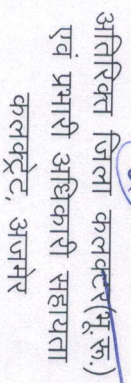 अतिरिक्त जिला कलक्टर(भू.रू.)
एवं प्रभारी अधिकारी सहायता
कलक्ट्रेट, अजमेर